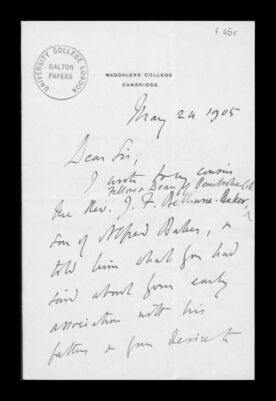 f. 45r
UNIVERSITY COLLEGE LONDON
GALTON
PAPERS
MAGDALENE COLLEGE
CAMBRIDGE
May 24 1905
Dear Sir,
I wrote to my cousin
Fellow & Dean of Pembroke Coll.
the Rev. J. F. Bethune-Baker,
son of Alfred Baker, &
told him what you had
said about your early
association with his
father & your desire to